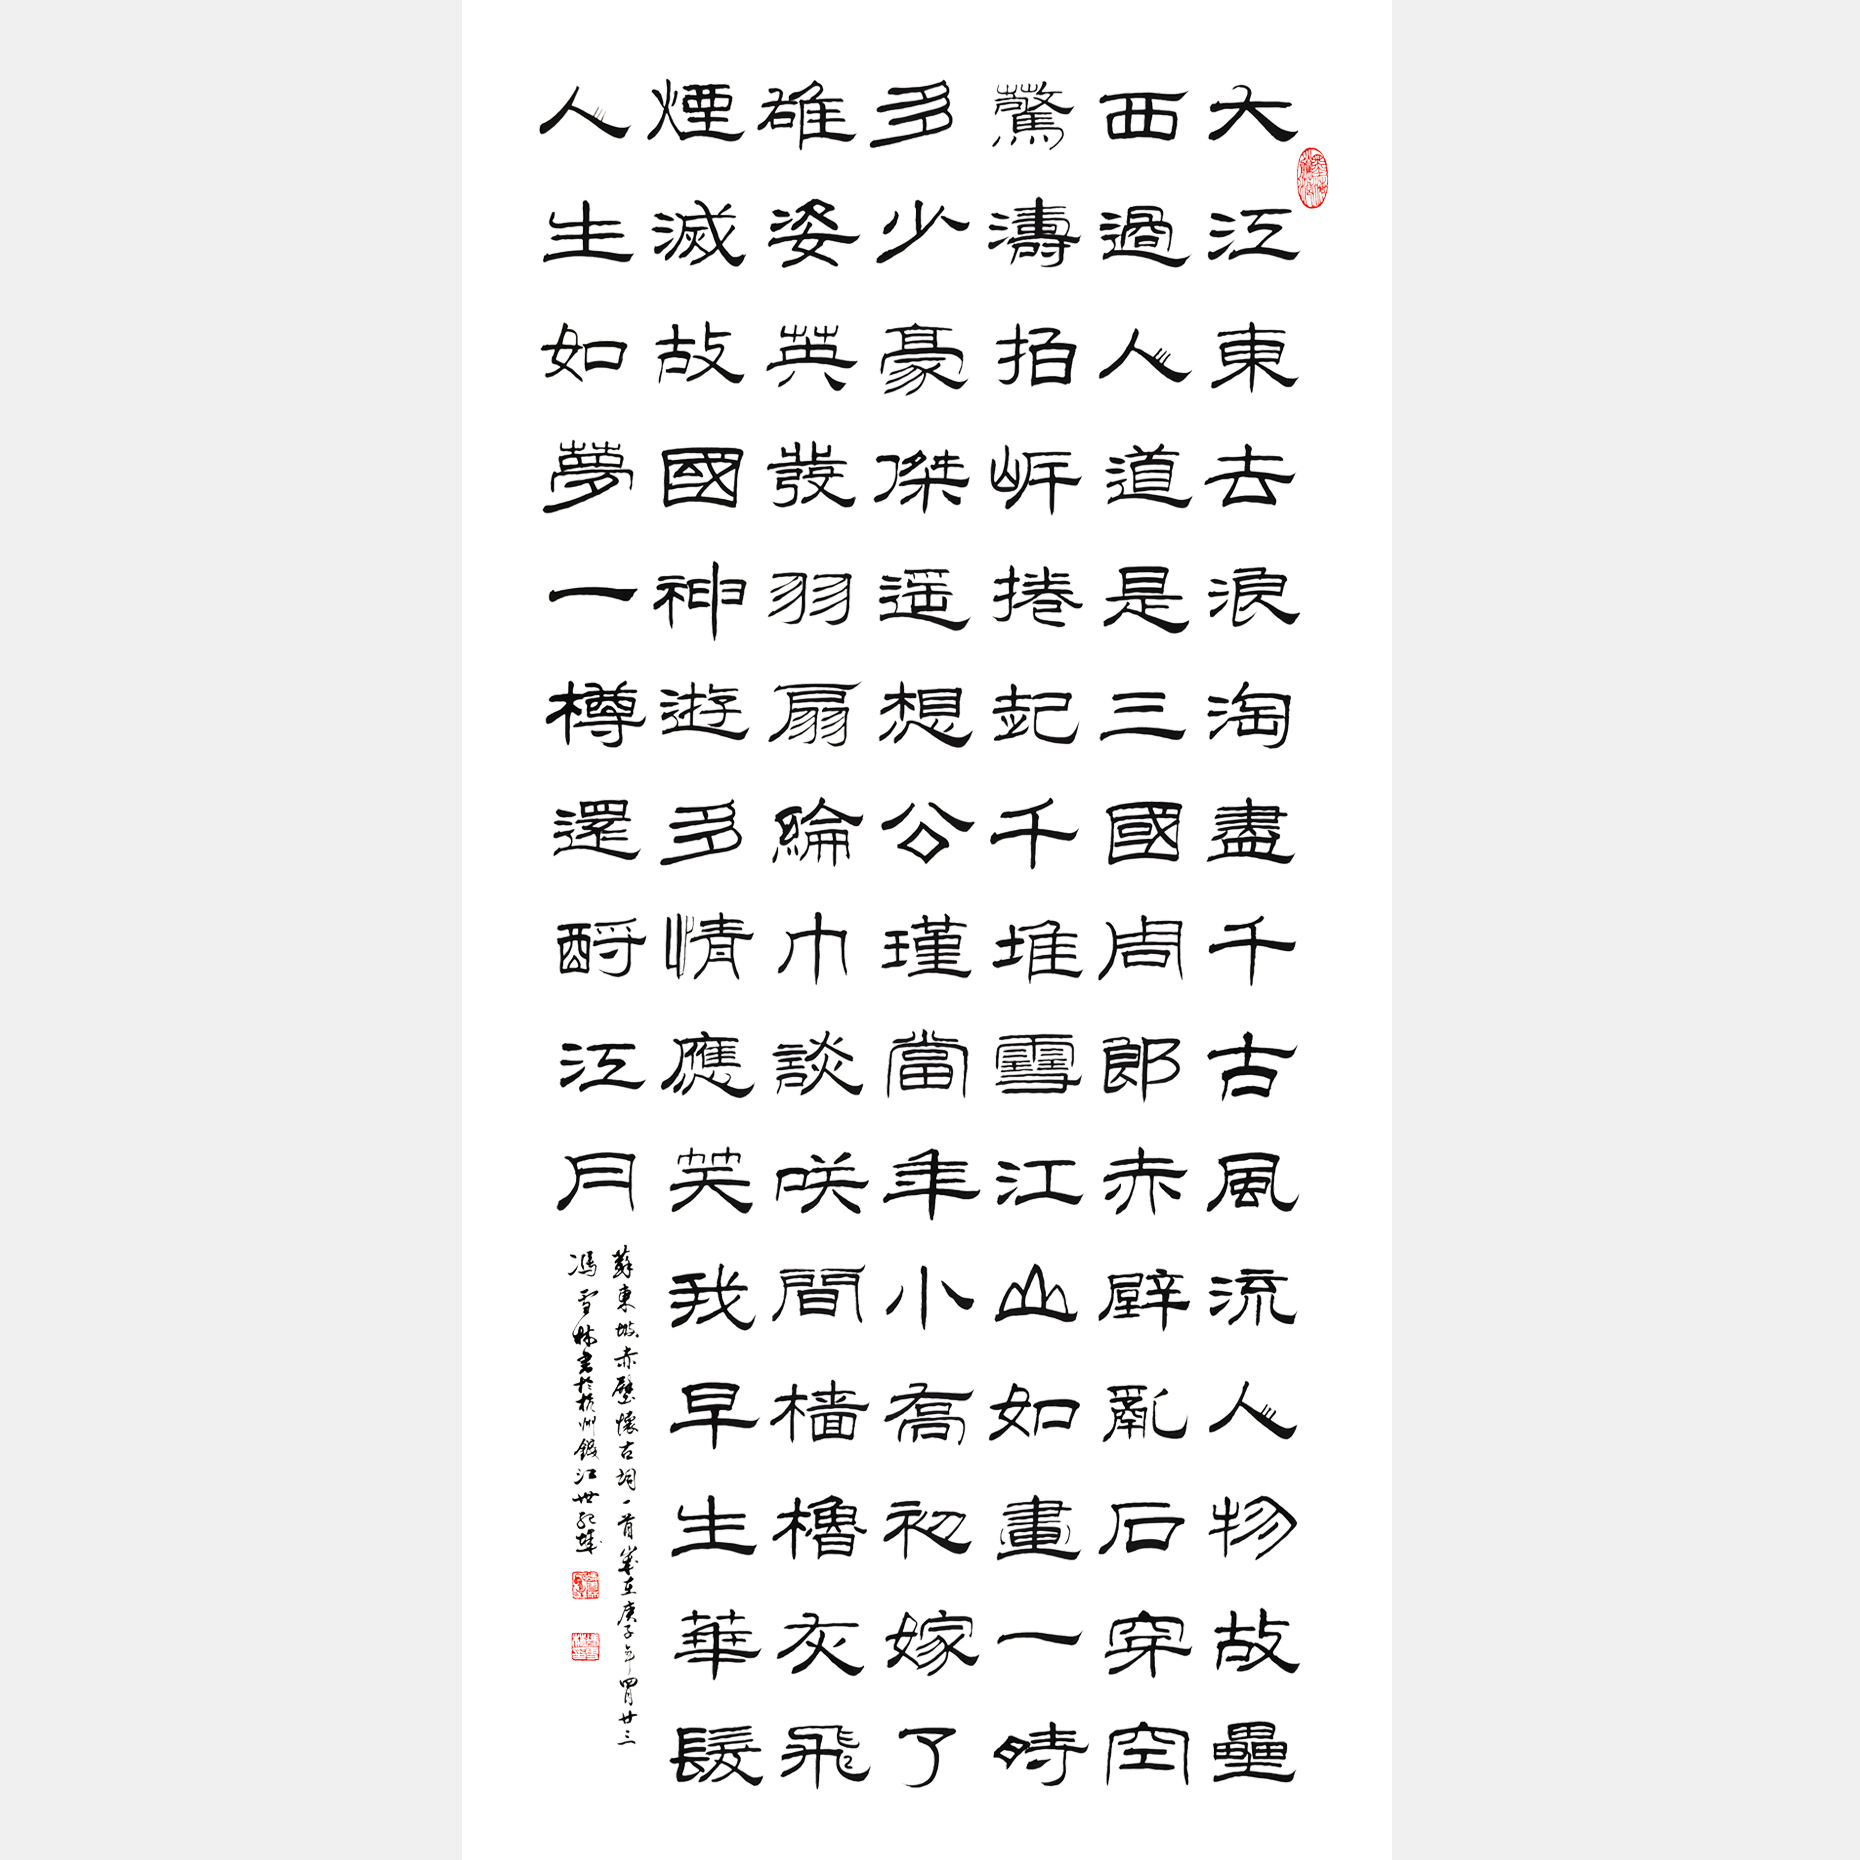 大江東去浪淘盡千古風流人物故壘
西過人道是三國周郎赤壁亂石穿空
驚濤拍岍捲起千堆雪江山如畫一時
多少豪傑遥想公瑾當年小喬初嫁了
雄姿英發羽扇綸巾談咲間檣櫓灰飛
煙滅故國神遊多情應笑我早生華髮
人生如夢一樽還酹江月
蘇東坡赤壁懷古詞一首歲在庚子年四月廿三
馮雪林書於杭州錢江世紀城